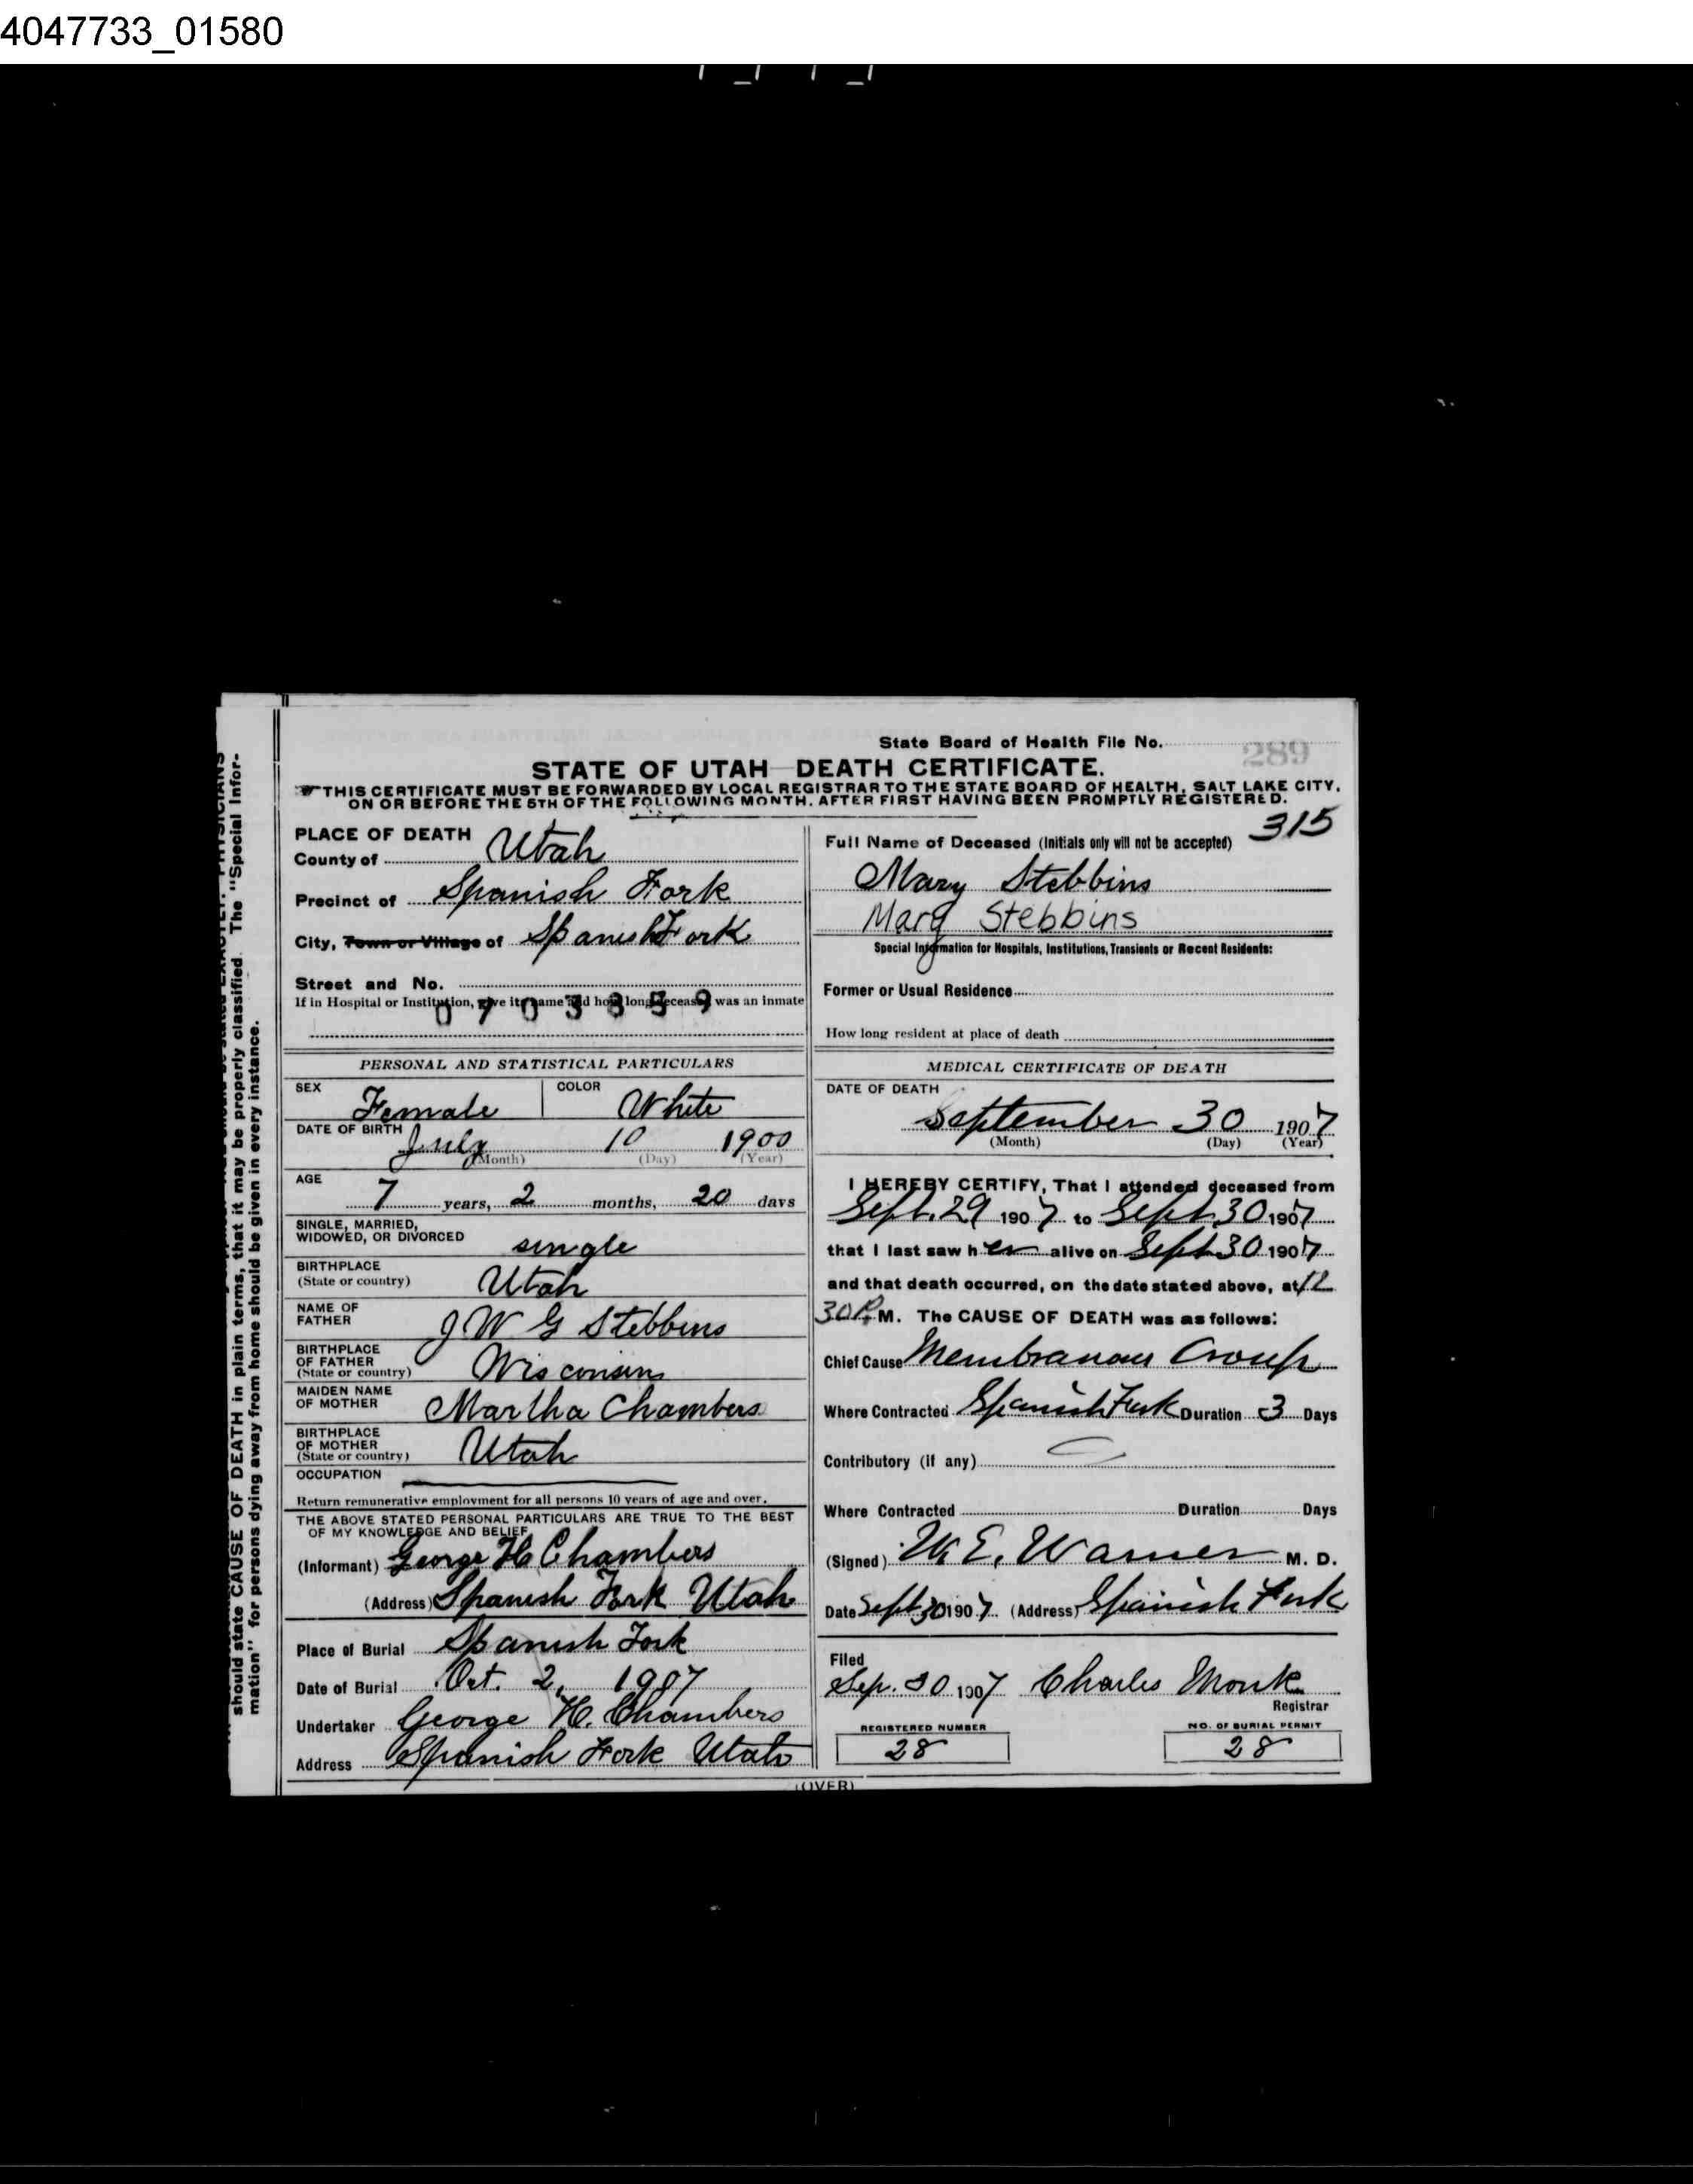 4047733_01580
State Board of Health File No. 289
STATE OF UTAH—DEATH CERTIFICATE.
THIS CERTIFICATE MUST BE FORWARDED BY LOCAL REGISTRAR TO THE STATE BOARD OF HEALTH, SALT LAKE CITY,
ON OR BEFORE THE 5TH OF THE FOLLOWING MONTH, AFTER FIRST HAVING BEEN PROMPTLY REGISTERED.
315
should state CAUSE OF DEATH in plain terms, that it may be properly classified. The "Special Infor-
mation" for persons dying away from home should be given in every instance.
PLACE OF DEATH
County of Utah
Precinct of Spanish Fork
City, Town or Village of Spanish Fork
Street and No.
If in Hospital or Institution, give its name and how long deceased was an inmate
0703859
PERSONAL AND STATISTICAL PARTICULARS
SEX Female COLOR White
DATE OF BIRTH July 10 1900
(Month) (Day) (Year)
AGE
7 years, 2 months, 20 days
SINGLE, MARRIED,
WIDOWED, OR DIVORCED single
BIRTHPLACE
(State or country) Utah
NAME OF
FATHER J W G Stebbins
BIRTHPLACE
OF FATHER
(State or country) Wisconsin
MAIDEN NAME
OF MOTHER Martha Chambers
BIRTHPLACE
OF MOTHER
(State or country) Utah
OCCUPATION
Return remunerative employment for all persons 10 years of age and over.
THE ABOVE STATED PERSONAL PARTICULARS ARE TRUE TO THE BEST
OF MY KNOWLEDGE AND BELIEF
(Informant) George H Chambers
(Address) Spanish Fork Utah
Place of Burial Spanish Fork
Date of Burial Oct. 2, 1907
Undertaker George H. Chambers
Address Spanish Fork Utah
Full Name of Deceased (Initials only will not be accepted)
Mary Stebbins
Mary Stebbins
Special Information for Hospitals, Institutions, Transients or Recent Residents:
Former or Usual Residence
How long resident at place of death
MEDICAL CERTIFICATE OF DEATH
DATE OF DEATH
September 30 1907
(Month) (Day) (Year)
I HEREBY CERTIFY, That I attended deceased from
Sept. 29 1907 to Sept 30 1907
that I last saw her alive on Sept 30 1907
and that death occurred, on the date stated above, at 12
30 P.M. The CAUSE OF DEATH was as follows:
Chief Cause Membranous Croup
Where Contracted Spanish Fork Duration 3 Days
Contributory (if any)
Where Contracted Duration Days
(Signed) W. E. Warner M. D.
Date Sept 30 1907 (Address) Spanish Fork
Filed
Sep. 30 1907 Charles Monk
Registrar
REGISTERED NUMBER NO. OF BURIAL PERMIT
28 28
(OVER)